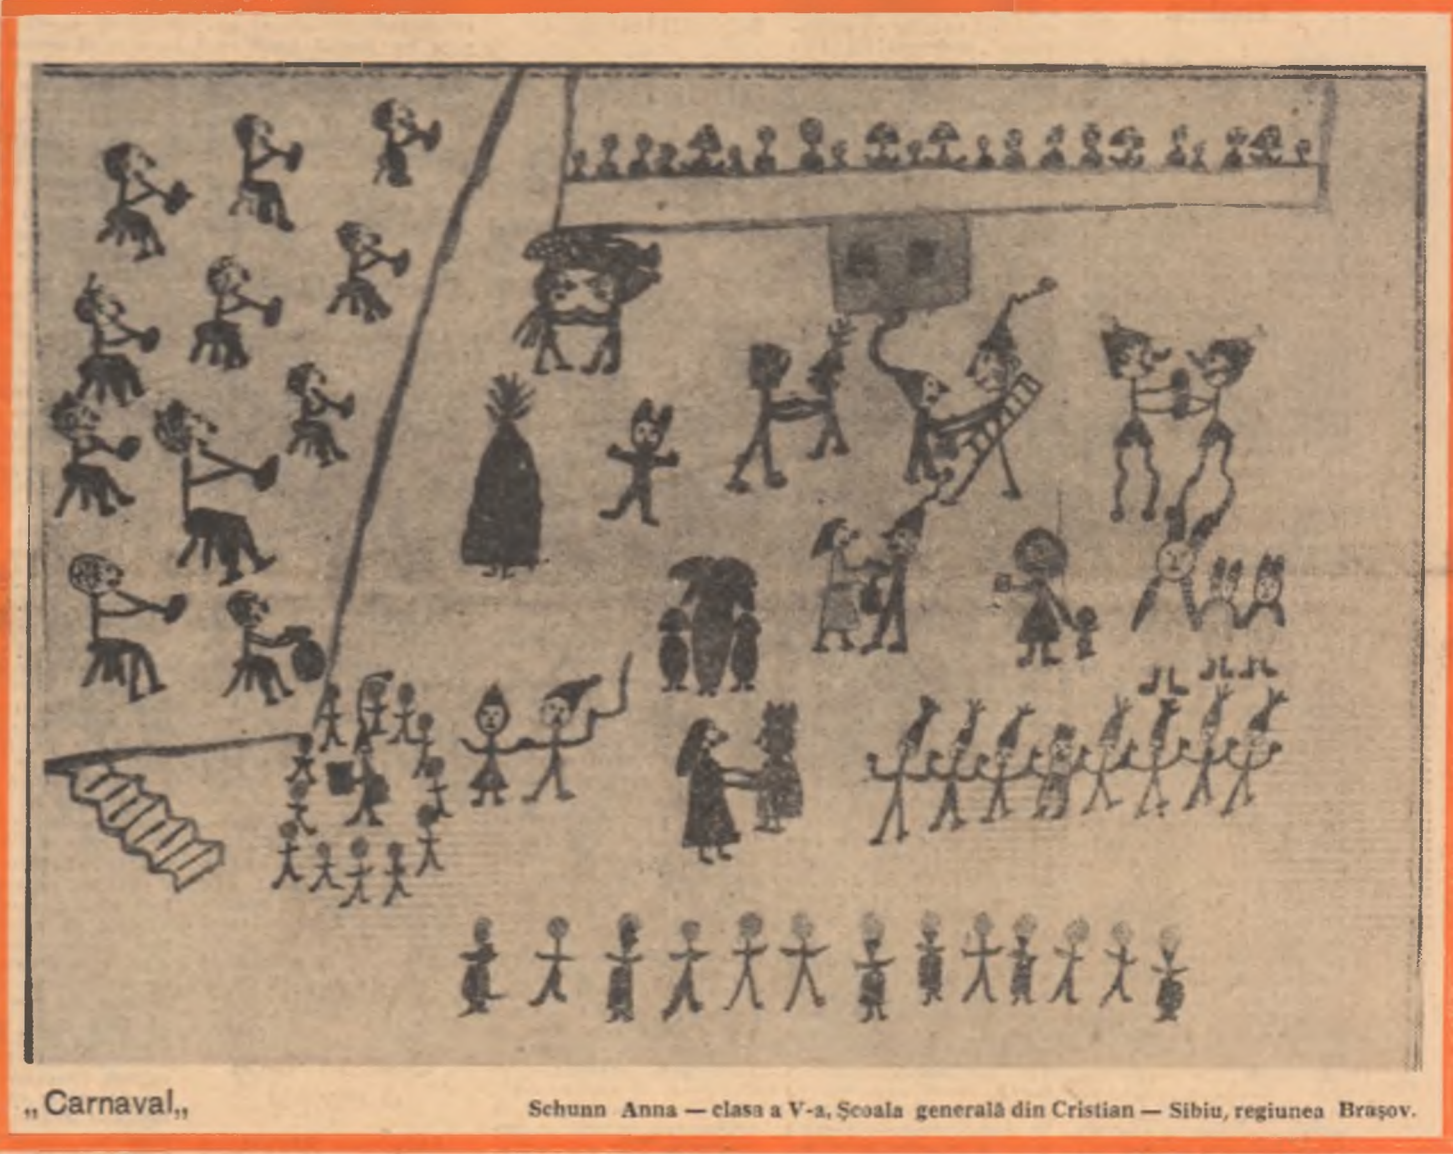 „Carnaval„
Schunn Anna — clasa a V-a, Școala generală din Cristian — Sibiu, regiunea Brașov.